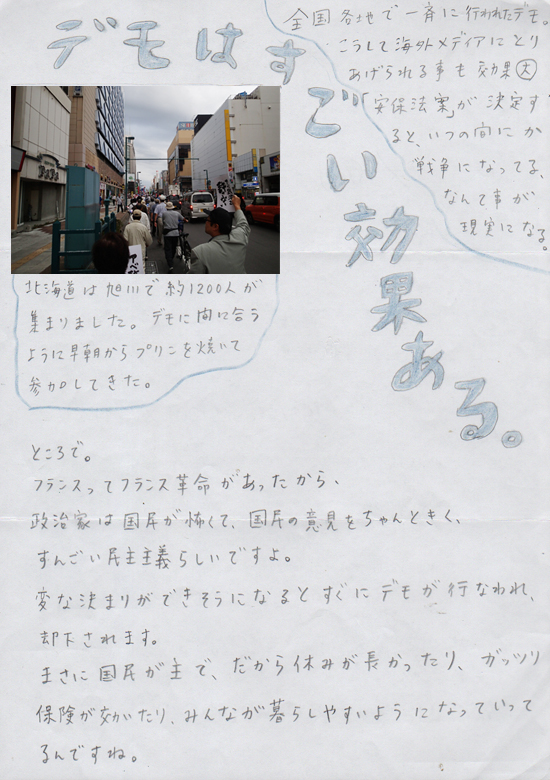 デモはすごい効果ある。
全国各地で一斉に行われたデモ。
こうして海外メディアにとり
あげられる事も効果大
「安保法案」が決定す
ると、いつの間にか
戦争になってる、
なんて事が
現実になる。
北海道は旭川で約1200人が
集まりました。デモに間に合う
ように早朝からプリンを焼いて
参加してきた。
ところで。
フランスってフランス革命があったから、
政治家は国民が怖くて、国民の意見をちゃんときく、
すんごい民主主義らしいですよ。
変な決まりができそうになるとすぐにデモが行なわれ、
却下されます。
まさに国民が主で、だから休みが長かったり、ガッツリ
保険が効いたり、みんなが暮らしやすいようになっていって
るんですね。